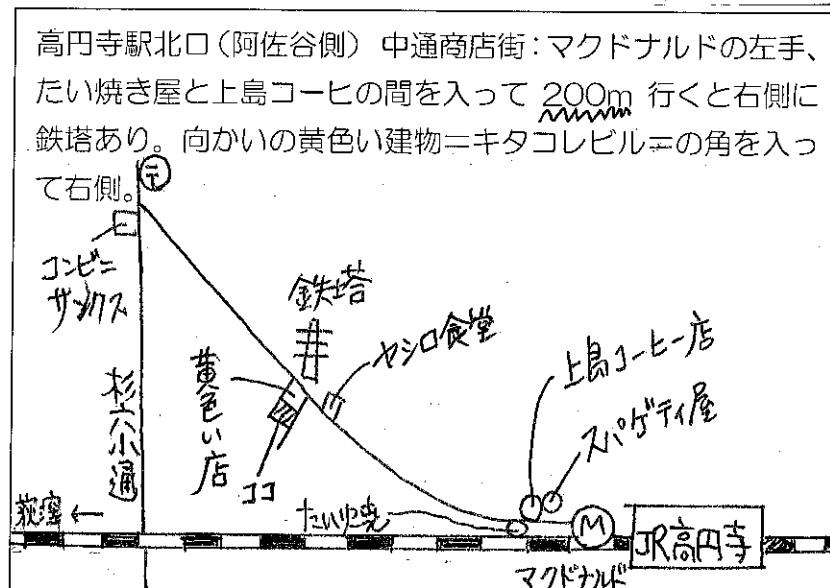 高円寺駅北口（阿佐谷側） 中通商店街：マクドナルドの左手、
たい焼き屋と上島コーヒの間を入って 200m 行くと右側に
鉄塔あり。向かいの黄色い建物＝キタコレビル＝の角を入っ
て右側。
〒
コンビニ
サンクス
鉄塔
ヤシロ食堂
上島コーヒー店
スパゲティ屋
黄色い店
杉六小通
ココ
荻窪 ←
たい焼
M
JR高円寺
マクドナルド